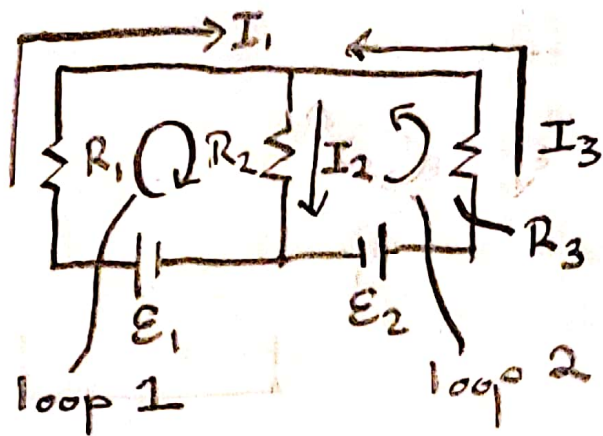 I₁
R₁
R₂
I₂
I₃
R₃
ε₁
ε₂
loop 1
loop 2